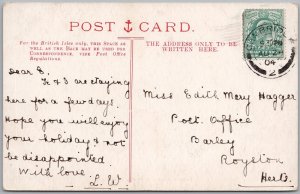 POST CARD.
For the British Isles only, THIS SPACE AS
WELL AS THE BACK MAY BE USED FOR
CORRESPONDENCE. VIDE Post Office
Regulations.
THE ADDRESS ONLY TO BE
WRITTEN HERE.
04
2
Dear E.
& I are staying
here for a few days.
Hope you will enjoy
your holiday & not
be disappointed
With love L.W
Miss Edith Mary Hagger
Post Office
Barley
Royston
Herts.